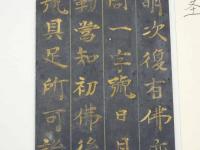 明次復有佛亦
同一字號日月
勤當知初佛後
號具足所可說